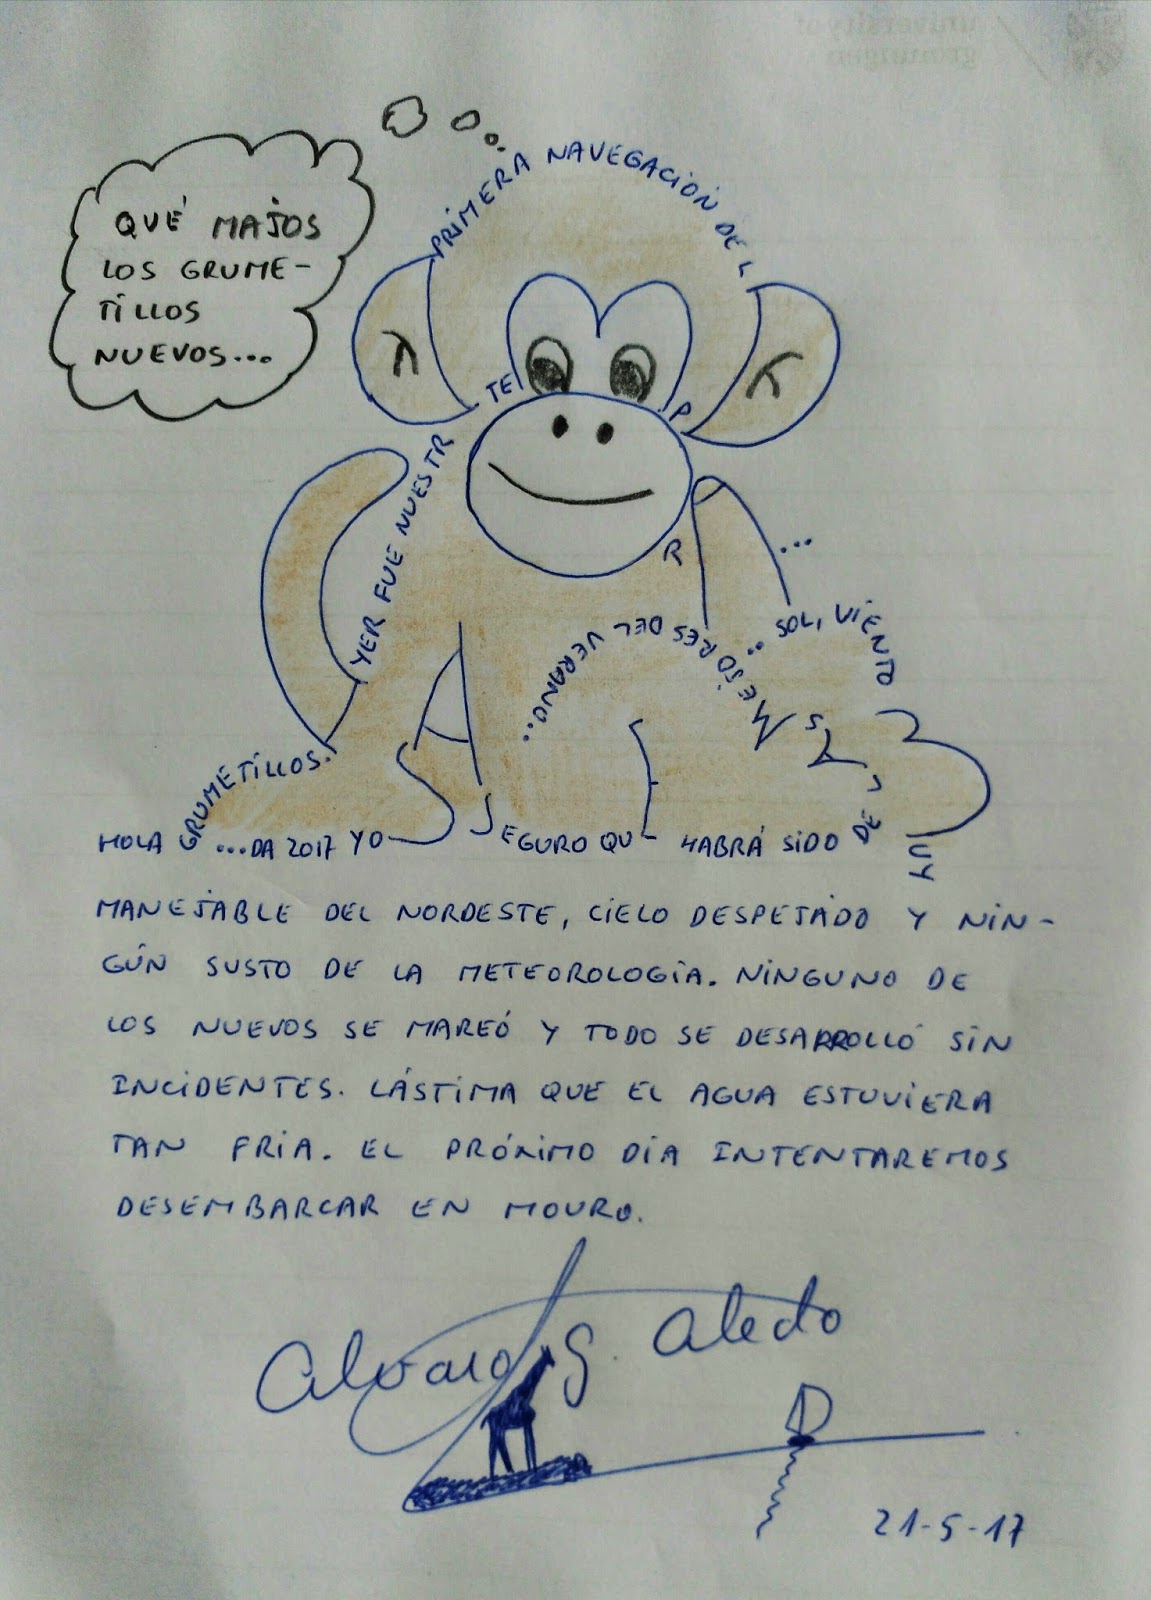 university of
groningen
QUÉ MAJOS
LOS GRUME-
TILLOS
NUEVOS...
HOLA GRUMETILLOS.
YER FUE NUESTR
PRIMERA NAVEGACIÓN DE L
TE
P
R
...DA 2017 YO S A S EGURO QU E HABRÁ SIDO DE L S
MEJORES DEL VERANO...
... SOL, VIENTO
MUY
MANEJABLE DEL NORDESTE, CIELO DESPEJADO Y NIN-
GÚN SUSTO DE LA METEOROLOGÍA. NINGUNO DE
LOS NUEVOS SE MAREÓ Y TODO SE DESARROLLÓ SIN
INCIDENTES. LÁSTIMA QUE EL AGUA ESTUVIERA
TAN FRÍA. EL PRÓXIMO DÍA INTENTAREMOS
DESEMBARCAR EN MOURO.
Alvaro G. Aledo
21-5-17